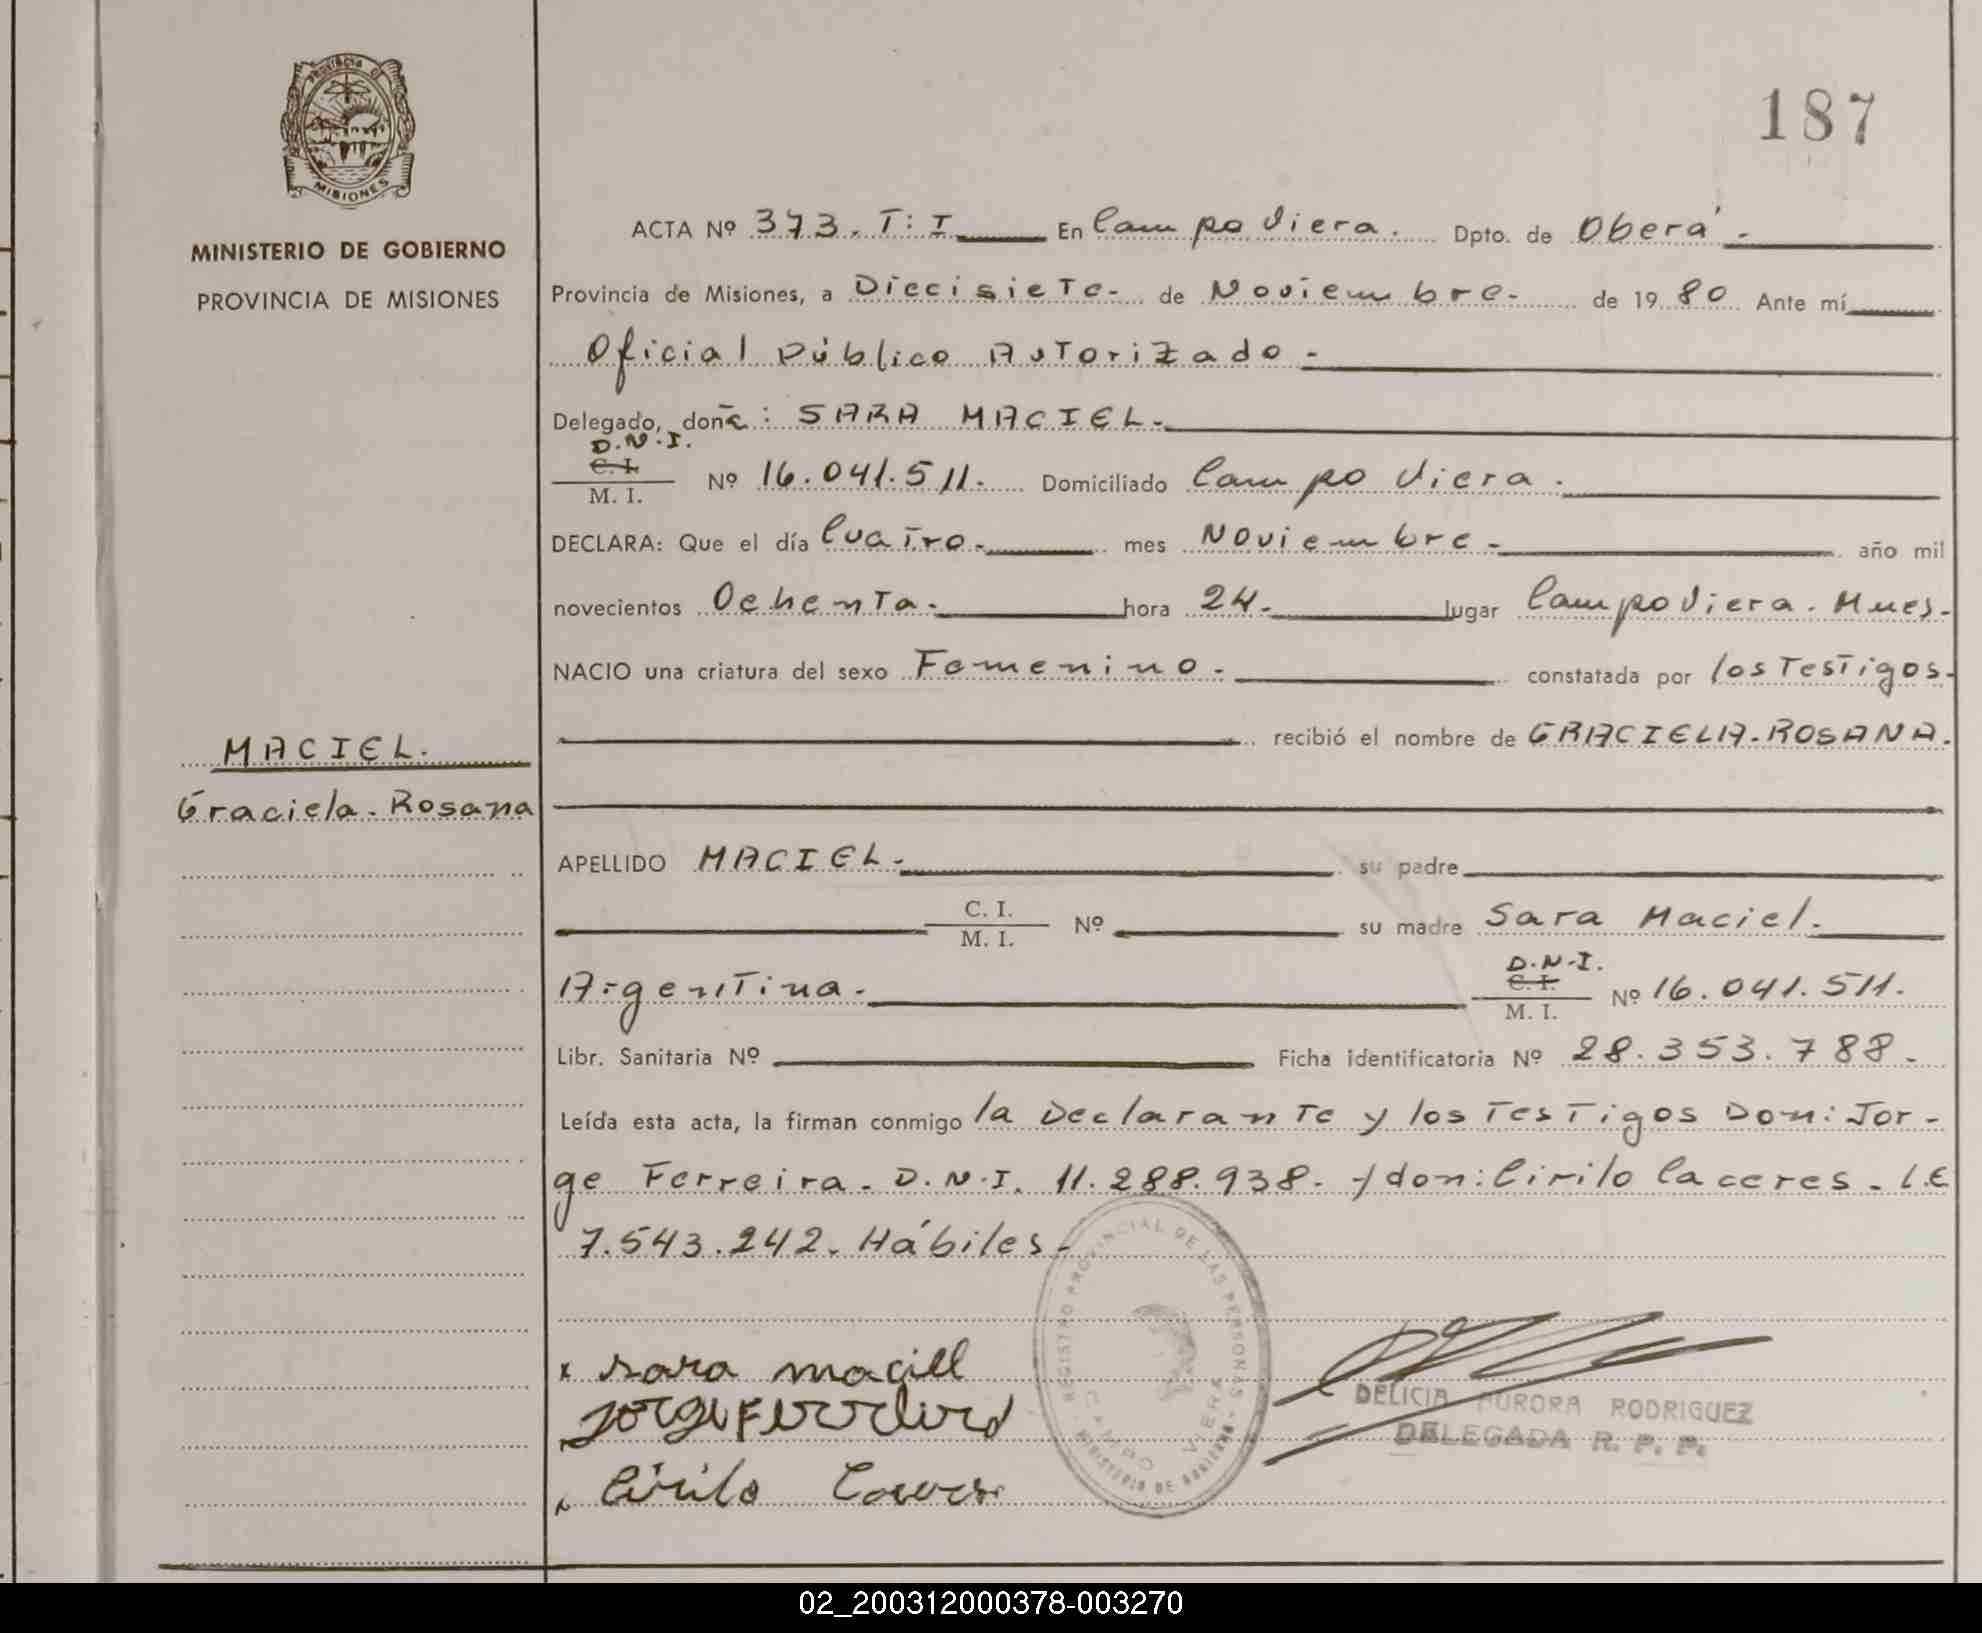 PROVINCIA DE
MISIONES
MINISTERIO DE GOBIERNO
PROVINCIA DE MISIONES
187
ACTA Nº 373. T: I En Campo Viera. Dpto. de Oberá.-
Provincia de Misiones, a Diecisiete- de Noviembre- de 1980 Ante mí
Oficial Público Autorizado-
Delegado, doña: SARA MACIEL.-
D.N.I.
C. I.
M. I. Nº 16.041.511. Domiciliado Campo Viera.
DECLARA: Que el día Cuatro- mes Noviembre- año mil
novecientos Ochenta- hora 24.- lugar Campo Viera. Mnes.-
NACIO una criatura del sexo Femenino.- constatada por los Testigos-
recibió el nombre de GRACIELA.ROSANA.
MACIEL.
Graciela. Rosana
APELLIDO MACIEL.- su padre
C. I.
M. I. Nº su madre Sara Maciel.
Argentina.-
D.N.I.
C. I.
M. I. Nº 16.041.511.
Libr. Sanitaria Nº Ficha identificatoria Nº 28.353.788-
Leída esta acta, la firman conmigo la Declarante y los Testigos Don: Jor-
ge Ferreira. D.N.I. 11.288.938. y don: Cirilo Caceres. L.E
7.543.242. Hábiles-
x sara maciel
Jorge Ferreira
Cirilo
REGISTRO PROVINCIAL DE LAS PERSONAS
CAMPO VIERA
MINISTERIO DE GOBIERNO
DELICIA AURORA RODRIGUEZ
DELEGADA R. P. P.
02_200312000378-003270